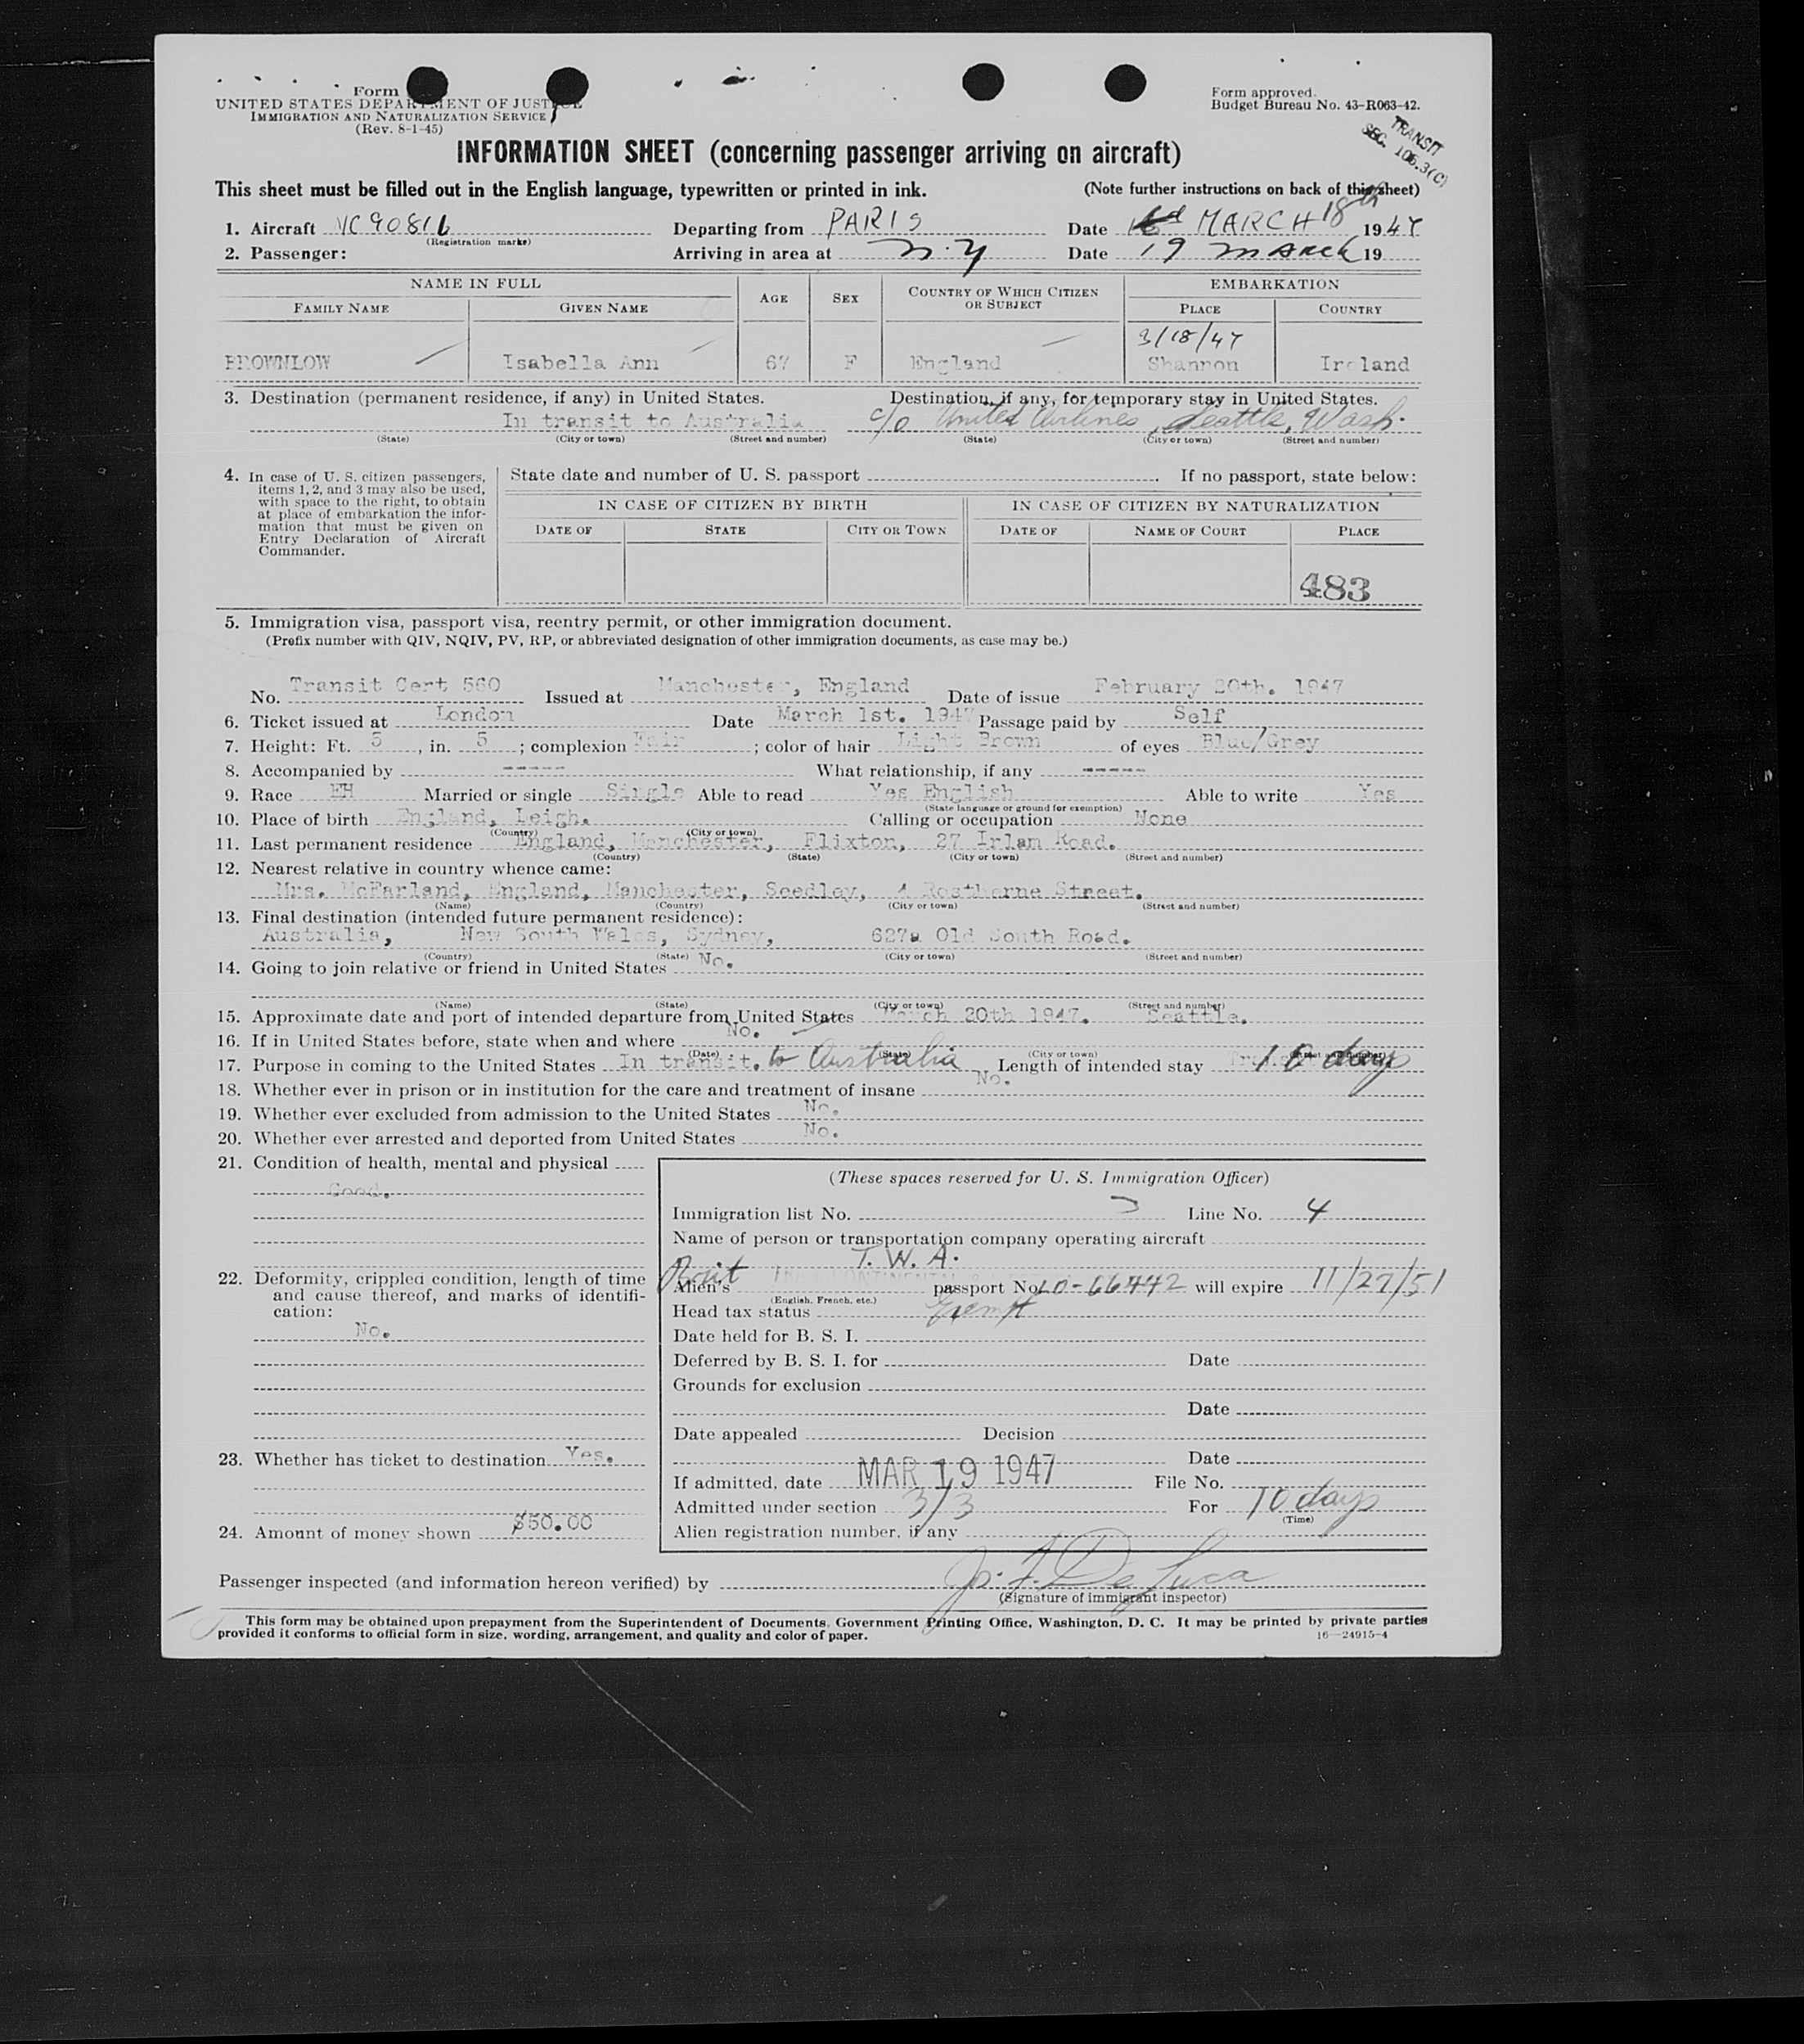 Form
UNITED STATES DEPARTMENT OF JUSTICE
IMMIGRATION AND NATURALIZATION SERVICE
(Rev. 8-1-45)
Form approved.
Budget Bureau No. 43-R063-42.
TRANSIT
SEC. 105.3(C)
INFORMATION SHEET (concerning passenger arriving on aircraft)
This sheet must be filled out in the English language, typewritten or printed in ink. (Note further instructions on back of this sheet)
1. Aircraft NC90816 Departing from PARIS Date MARCH 18th 1947
(Registration marks)
2. Passenger: Arriving in area at N.Y Date 19 March 19
NAME IN FULL AGE SEX COUNTRY OF WHICH CITIZEN OR SUBJECT EMBARKATION
FAMILY NAME GIVEN NAME PLACE COUNTRY
3/18/47
BROWNLOW Isabella Ann 67 F England Shannon Ireland
3. Destination (permanent residence, if any) in United States. Destination, if any, for temporary stay in United States.
In transit to Australia c/o United Airlines, Seattle, Wash.
(State) (City or town) (Street and number) (State) (City or town) (Street and number)
4. In case of U. S. citizen passengers, items 1, 2, and 3 may also be used, with space to the right, to obtain at place of embarkation the information that must be given on Entry Declaration of Aircraft Commander.
State date and number of U. S. passport If no passport, state below:
IN CASE OF CITIZEN BY BIRTH IN CASE OF CITIZEN BY NATURALIZATION
DATE OF STATE CITY OR TOWN DATE OF NAME OF COURT PLACE
483
5. Immigration visa, passport visa, reentry permit, or other immigration document.
(Prefix number with QIV, NQIV, PV, RP, or abbreviated designation of other immigration documents, as case may be.)
No. Transit Cert 560 Issued at Manchester, England Date of issue February 20th. 1947
6. Ticket issued at London Date March 1st. 1947 Passage paid by Self
7. Height: Ft. 5, in. 5; complexion Fair; color of hair Light Brown of eyes Blue/Grey
8. Accompanied by ----- What relationship, if any -----
9. Race EH Married or single Single Able to read Yes English Able to write Yes
(State language or ground for exemption)
10. Place of birth England, Leigh. Calling or occupation None
(Country) (City or town)
11. Last permanent residence England, Manchester, Flixton, 27 Irlam Road.
(Country) (State) (City or town) (Street and number)
12. Nearest relative in country whence came:
Mrs. McFarland, England, Manchester, Seedley, 4 Rostherne Street.
(Name) (Country) (City or town) (Street and number)
13. Final destination (intended future permanent residence):
Australia, New South Wales, Sydney, 627a Old South Road.
(Country) (State) (City or town) (Street and number)
14. Going to join relative or friend in United States No.
(Name) (State) (City or town) (Street and number)
15. Approximate date and port of intended departure from United States March 20th 1947. Seattle.
16. If in United States before, state when and where No.
(Date) (State) (City or town) (Street and number)
17. Purpose in coming to the United States In transit. to Australia Length of intended stay 10 days
18. Whether ever in prison or in institution for the care and treatment of insane No.
19. Whether ever excluded from admission to the United States No.
20. Whether ever arrested and deported from United States No.
21. Condition of health, mental and physical
Good.
22. Deformity, crippled condition, length of time and cause thereof, and marks of identification:
No.
23. Whether has ticket to destination Yes.
24. Amount of money shown $50.00
(These spaces reserved for U. S. Immigration Officer)
Immigration list No. Line No. 4
Name of person or transportation company operating aircraft
T. W. A.
Alien's Brit passport No. LO-66442 will expire 11/27/51
(English, French, etc.)
Head tax status Exempt
Date held for B. S. I.
Deferred by B. S. I. for Date
Grounds for exclusion
Date
Date appealed Decision
Date
If admitted, date MAR 19 1947 File No.
Admitted under section 3/3 For 10 days
(Time)
Alien registration number, if any
Passenger inspected (and information hereon verified) by De Luca
(Signature of immigrant inspector)
This form may be obtained upon prepayment from the Superintendent of Documents, Government Printing Office, Washington, D. C. It may be printed by private parties
provided it conforms to official form in size, wording, arrangement, and quality and color of paper.
16—24915-4